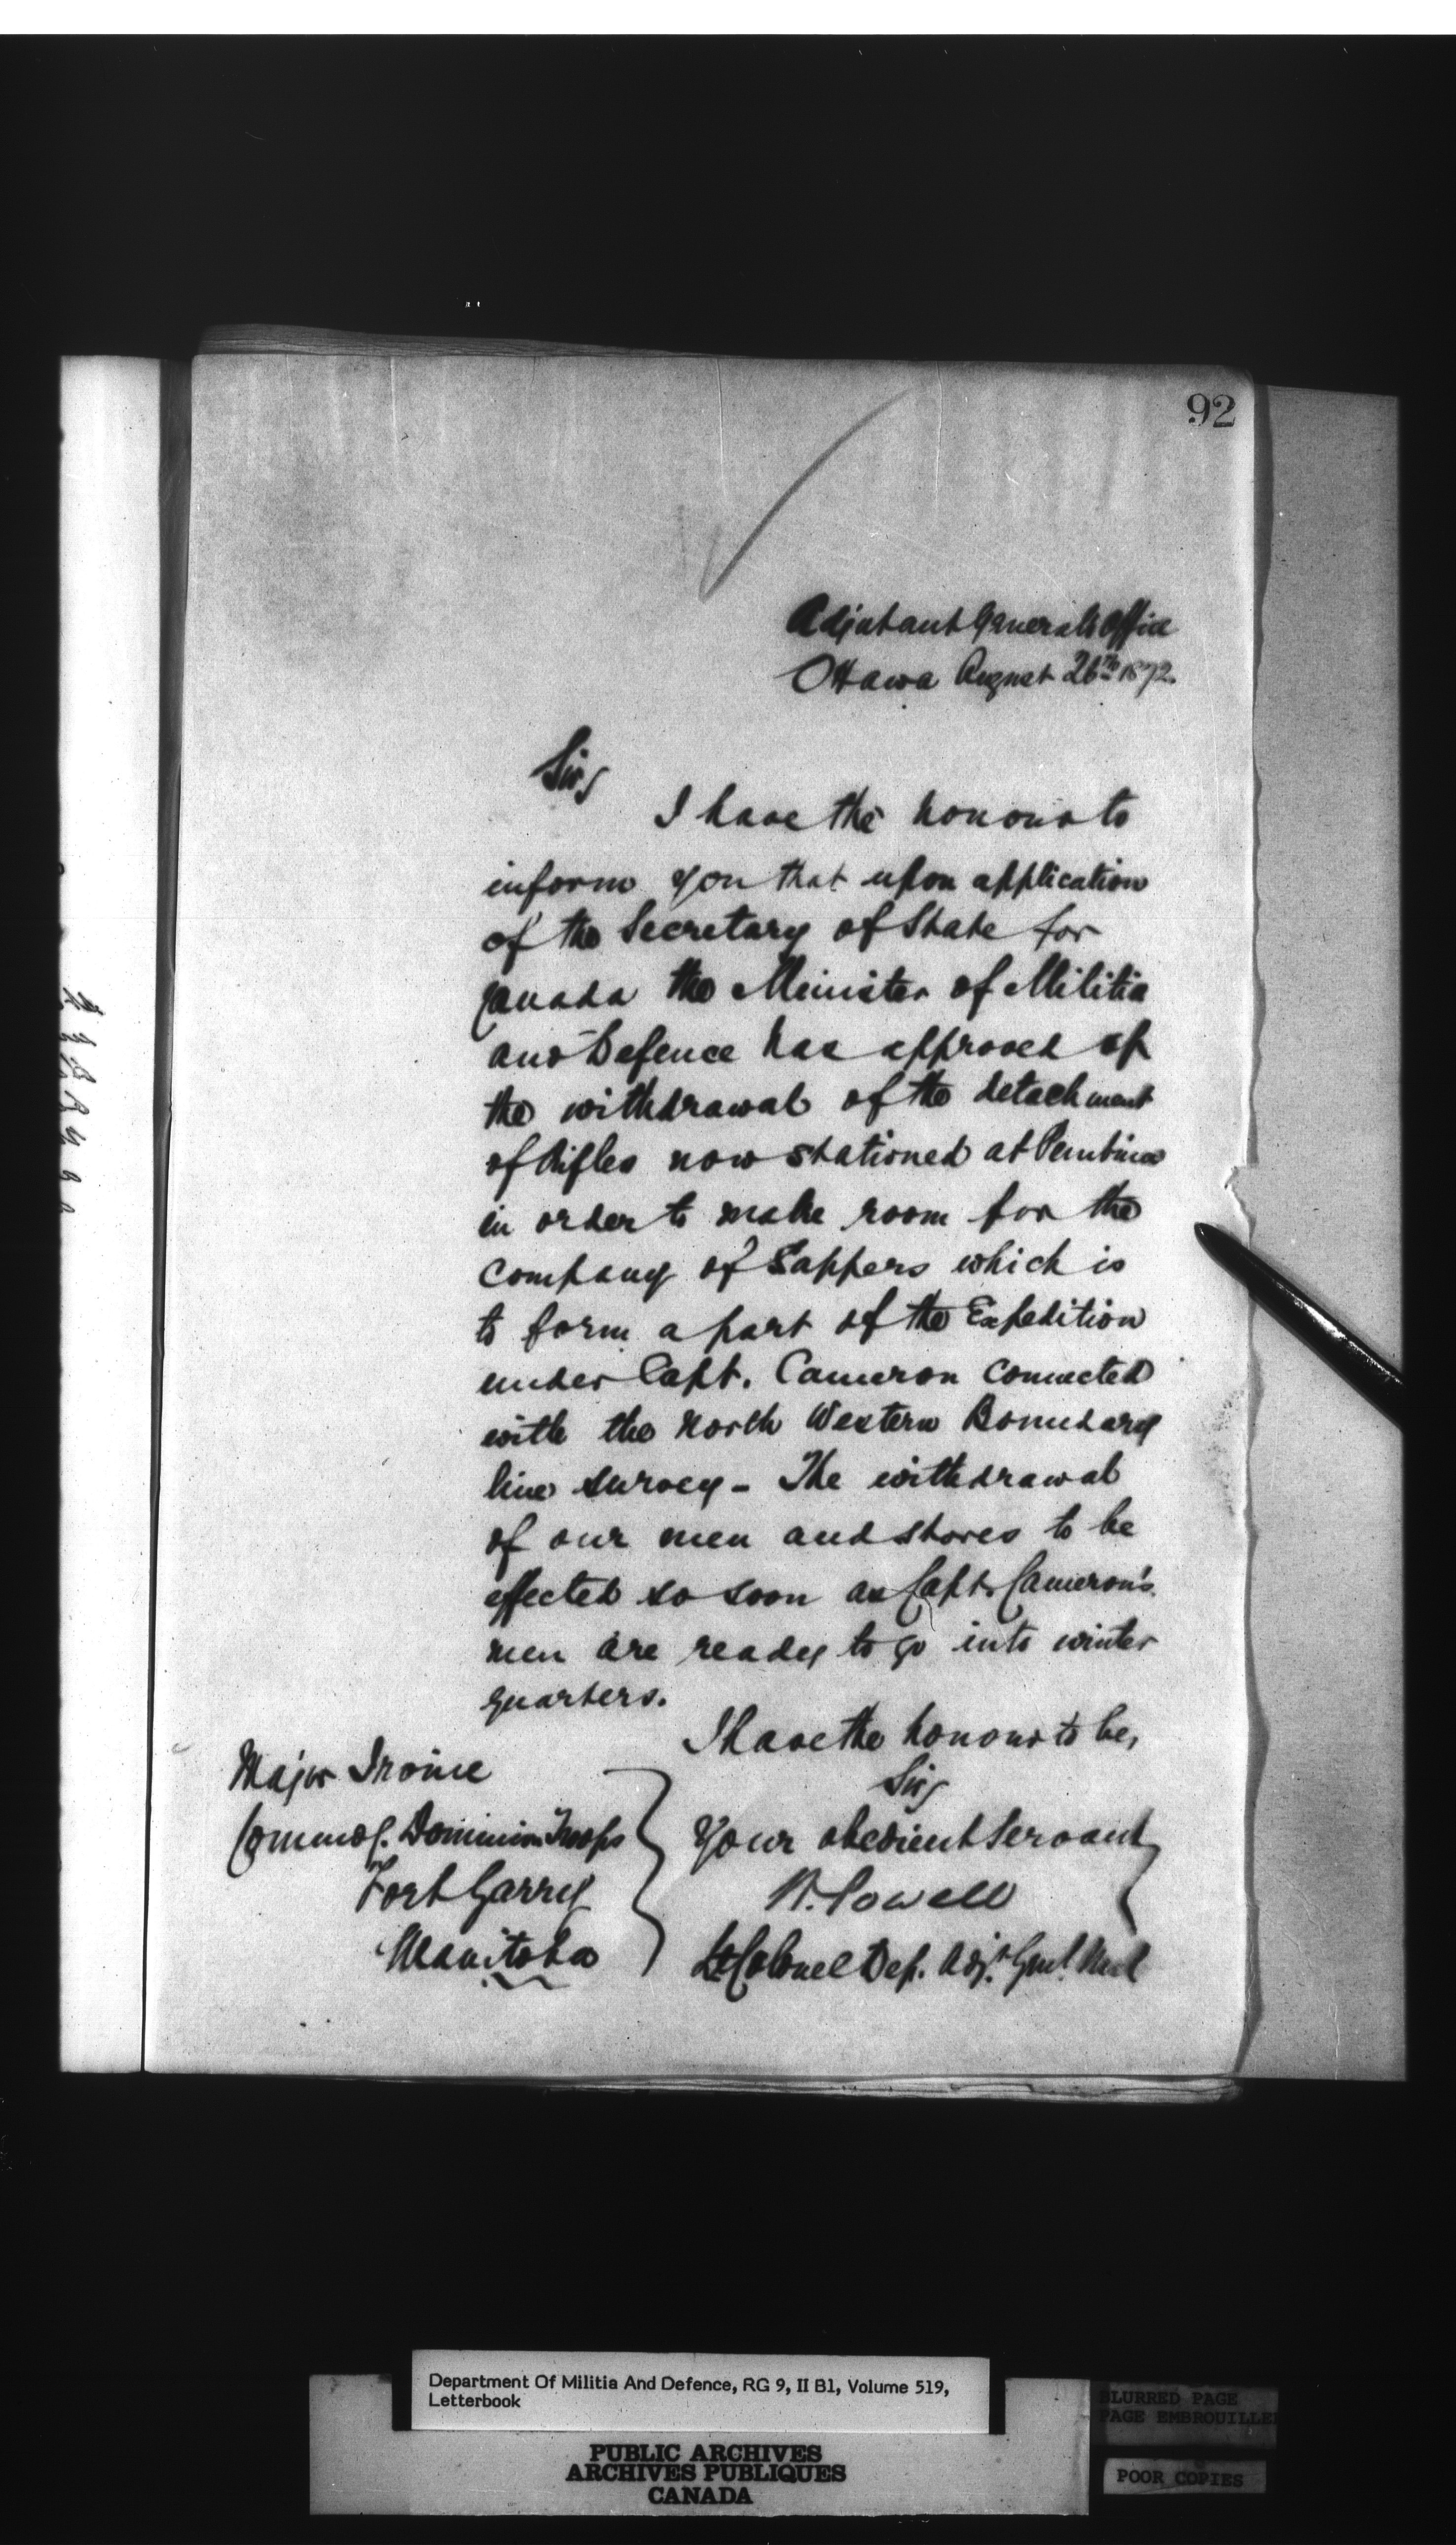 92
Adjutant Generals Office
Ottawa August 26th 1872.
Sir,
I have the honour to
inform you that upon application
of the Secretary of State for
Canada the Minister of Militia
and Defence has approved of
the withdrawal of the detachment
of Rifles now stationed at Pembina
in order to make room for the
Company of Sappers which is
to form a part of the Expedition
under Capt. Cameron connected
with the North Western Boundary
line survey - The withdrawal
of our men and stores to be
effected so soon as Capt. Cameron's
men are ready to go into winter
quarters.
I have the honour to be,
Sir,
Your obedient Servant,
W. Powell
Lt Colonel Dep. Adjt. Genl.
Major Irvine
Commdg. Dominion Troops
Fort Garry
Manitoba
Department Of Militia And Defence, RG 9, II B1, Volume 519,
Letterbook
PUBLIC ARCHIVES
ARCHIVES PUBLIQUES
CANADA
BLURRED PAGE
PAGE EMBROUILLEE
POOR COPIES